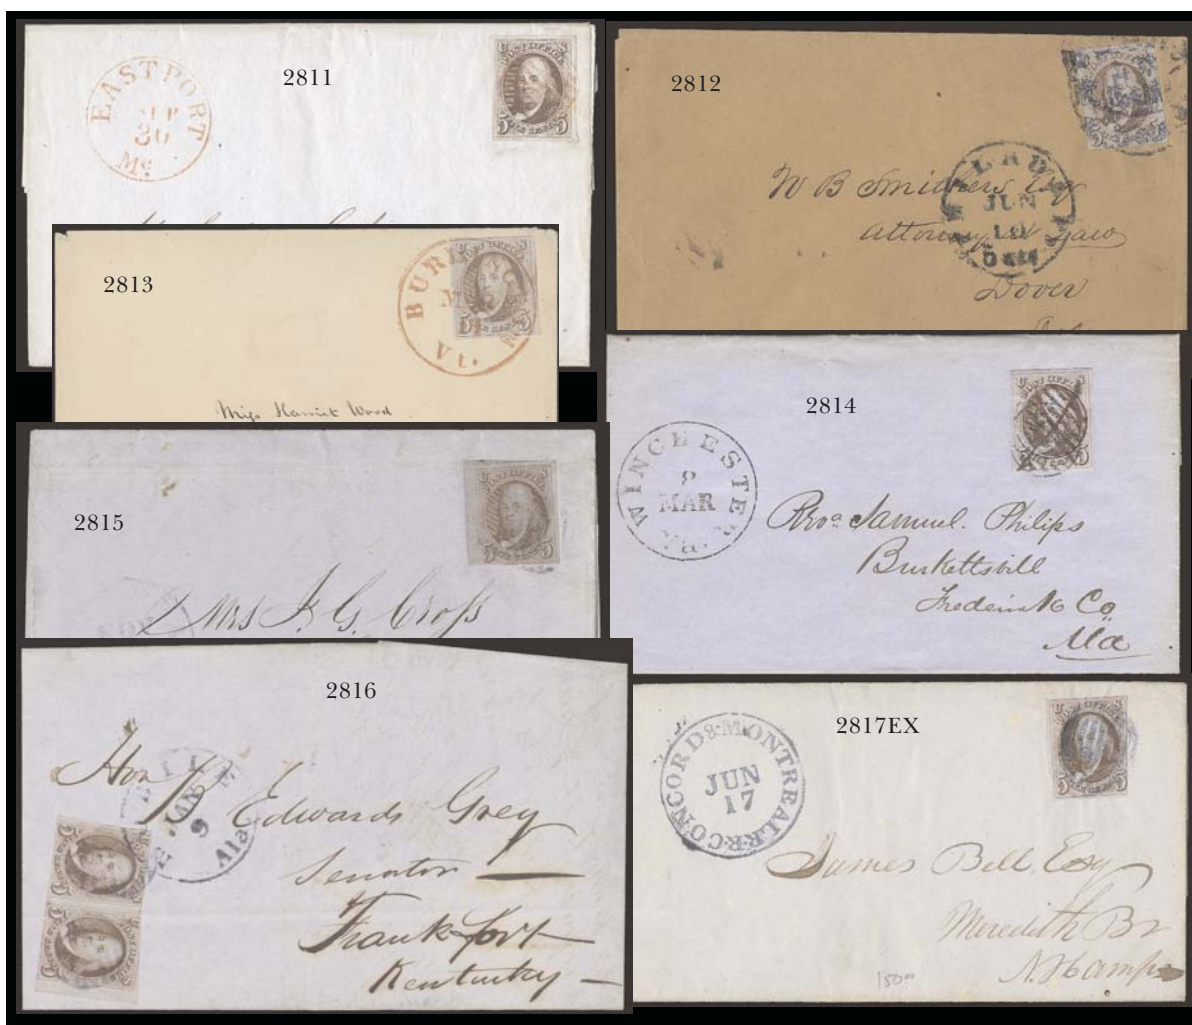 2811
EASTPORT
SEP
30
Me
POST OFFICE
5 5
2812
JUN
W B Smithers Esq
Attorney at Law
Dover
2813
BUR
Vt.
Miss Harriet Wood
2814
WINCHESTER
9
MAR
Samuel Philips
Burkettsvill
Frederick Co
Md
2815
POST OFFICE
5 5
Mrs J. G. Cross
2816
Hon
Edwards Grey
JAN
9
Ala
Senator
Frankfort
Kentucky
2817EX
CONCORD & MONTREAL R.R.
JUN
17
James Bell Esq
Meredith Br
N. Hamps
1500